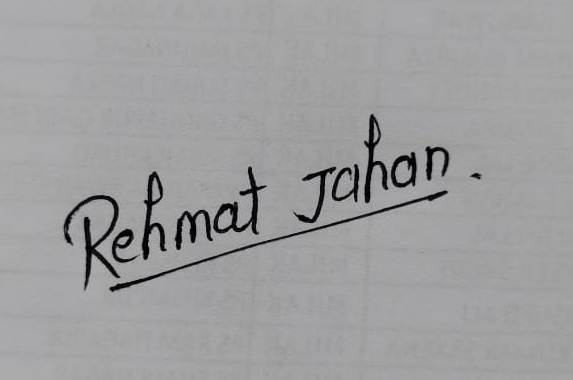 Rehmat Jahan.